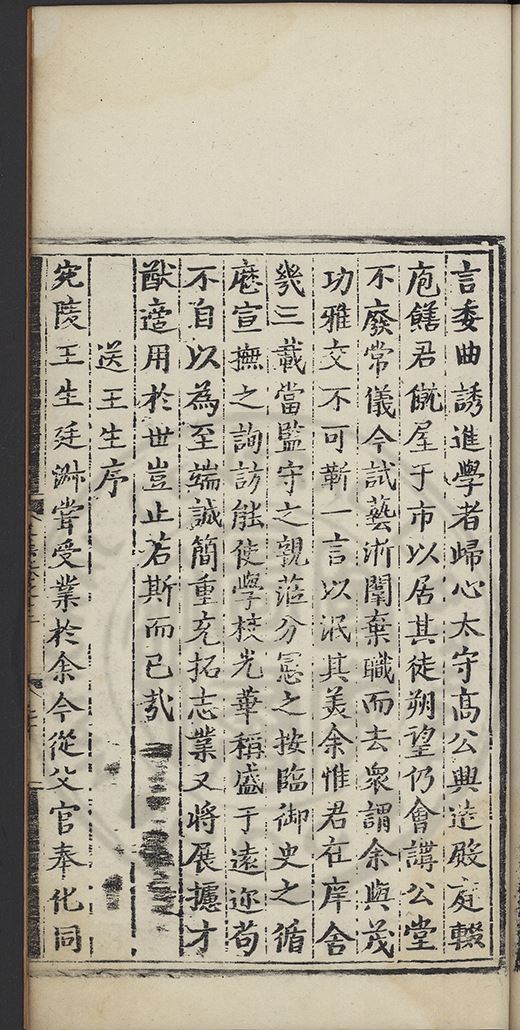 言委曲誘進學者歸心太守高公興造殿庭輟
庖饍君僦屋于市以居其徒朔望仍會講公堂
不廢常儀今試藝浙闈棄職而去衆謂余與茂
功雅交不可靳一言以泯其美余惟君在庠舍
幾三載當監守之親蒞分憲之按臨御史之循
歷宣撫之詢訪能使學校光華稱盛于遠迩苟
不自以為至端誠簡重充拓志業又將展攄才
猷適用於世豈止若斯而已哉
送王生序
宛陵王生廷渊嘗受業於余今從父官奉化同